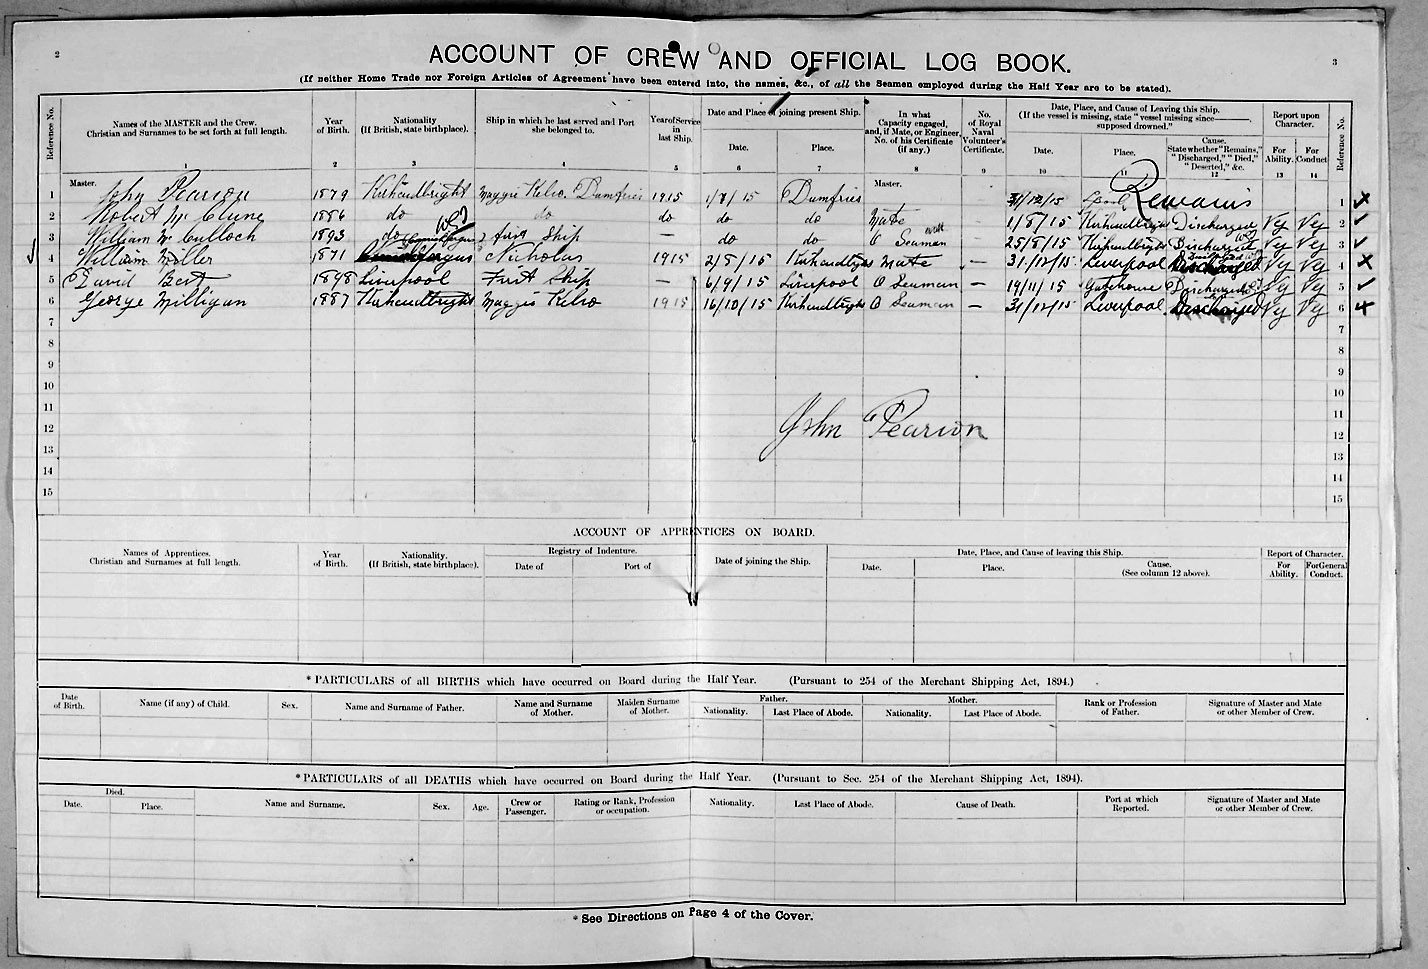 2
3
ACCOUNT OF CREW AND OFFICIAL LOG BOOK.
(If neither Home Trade nor Foreign Articles of Agreement have been entered into, the names, &c., of all the Seamen employed during the Half Year are to be stated).
Reference No.
Names of the MASTER and the Crew. Christian and Surnames to be set forth at full length. 1
Year of Birth. 2
Nationality (If British, state birthplace). 3
Ship in which he last served and Port she belonged to. 4
Year of Service in last Ship. 5
Date and Place of joining present Ship.
Date. 6
Place. 7
In what Capacity engaged, and, if Mate, or Engineer, No. of his Certificate (if any). 8
No. of Royal Naval Volunteer's Certificate. 9
Date, Place, and Cause of Leaving this Ship. (If the vessel is missing, state "vessel missing since——, supposed drowned."
Date. 10
Place. 11
Cause. State whether "Remains," "Discharged," "Died," "Deserted," &c. 12
Report upon Character.
For Ability. 13
For Conduct 14
Reference No.
1 Master. John Pearson 1879 Kirkcudbright Maggie Kelso. Dumfries 1915 1/7/15 Dumfries Master. 31/12/15 Lpool Remains 1
2 Robert Mc Clune 1886 do do do do do Mate 1/8/15 Kirkcudbright Discharged Vg Vg 2
3 William Mc Culloch 1893 do first Ship — do do O Seaman — 25/8/15 Kirkcudbright Discharged Vg Vg 3
4 William Miller 1871 Nicholas 1915 2/8/15 Kirkcudbright Mate — 31/12/15 Liverpool Discharged Vg Vg 4
5 David Bert 1898 Liverpool First Ship — 6/9/15 Liverpool O Seaman — 19/11/15 Gatehouse Discharged Vg Vg 5
6 George Milligan 1887 Kirkcudbright Maggie Kelso 1915 16/10/15 Kirkcudbright O Seaman — 31/12/15 Liverpool Discharged Vg Vg 6
7 7
8 8
9 9
10 10
11 11
John Pearson
12 12
13 13
14 14
15 15
ACCOUNT OF APPRENTICES ON BOARD.
Names of Apprentices. Christian and Surnames at full length.
Year of Birth.
Nationality. (If British, state birthplace).
Registry of Indenture.
Date of
Port of
Date of joining the Ship.
Date, Place, and Cause of leaving this Ship.
Date.
Place.
Cause. (See column 12 above).
Report of Character.
For Ability.
For General Conduct.
* PARTICULARS of all BIRTHS which have occurred on Board during the Half Year. (Pursuant to 254 of the Merchant Shipping Act, 1894.)
Date of Birth.
Name (if any) of Child.
Sex.
Name and Surname of Father.
Name and Surname of Mother.
Maiden Surname of Mother.
Father.
Nationality.
Last Place of Abode.
Mother.
Nationality.
Last Place of Abode.
Rank or Profession of Father.
Signature of Master and Mate or other Member of Crew.
* PARTICULARS of all DEATHS which have occurred on Board during the Half Year. (Pursuant to Sec. 254 of the Merchant Shipping Act, 1894).
Died.
Date.
Place.
Name and Surname.
Sex.
Age.
Crew or Passenger.
Rating or Rank, Profession or occupation.
Nationality.
Last Place of Abode.
Cause of Death.
Port at which Reported.
Signature of Master and Mate or other Member of Crew.
* See Directions on Page 4 of the Cover.